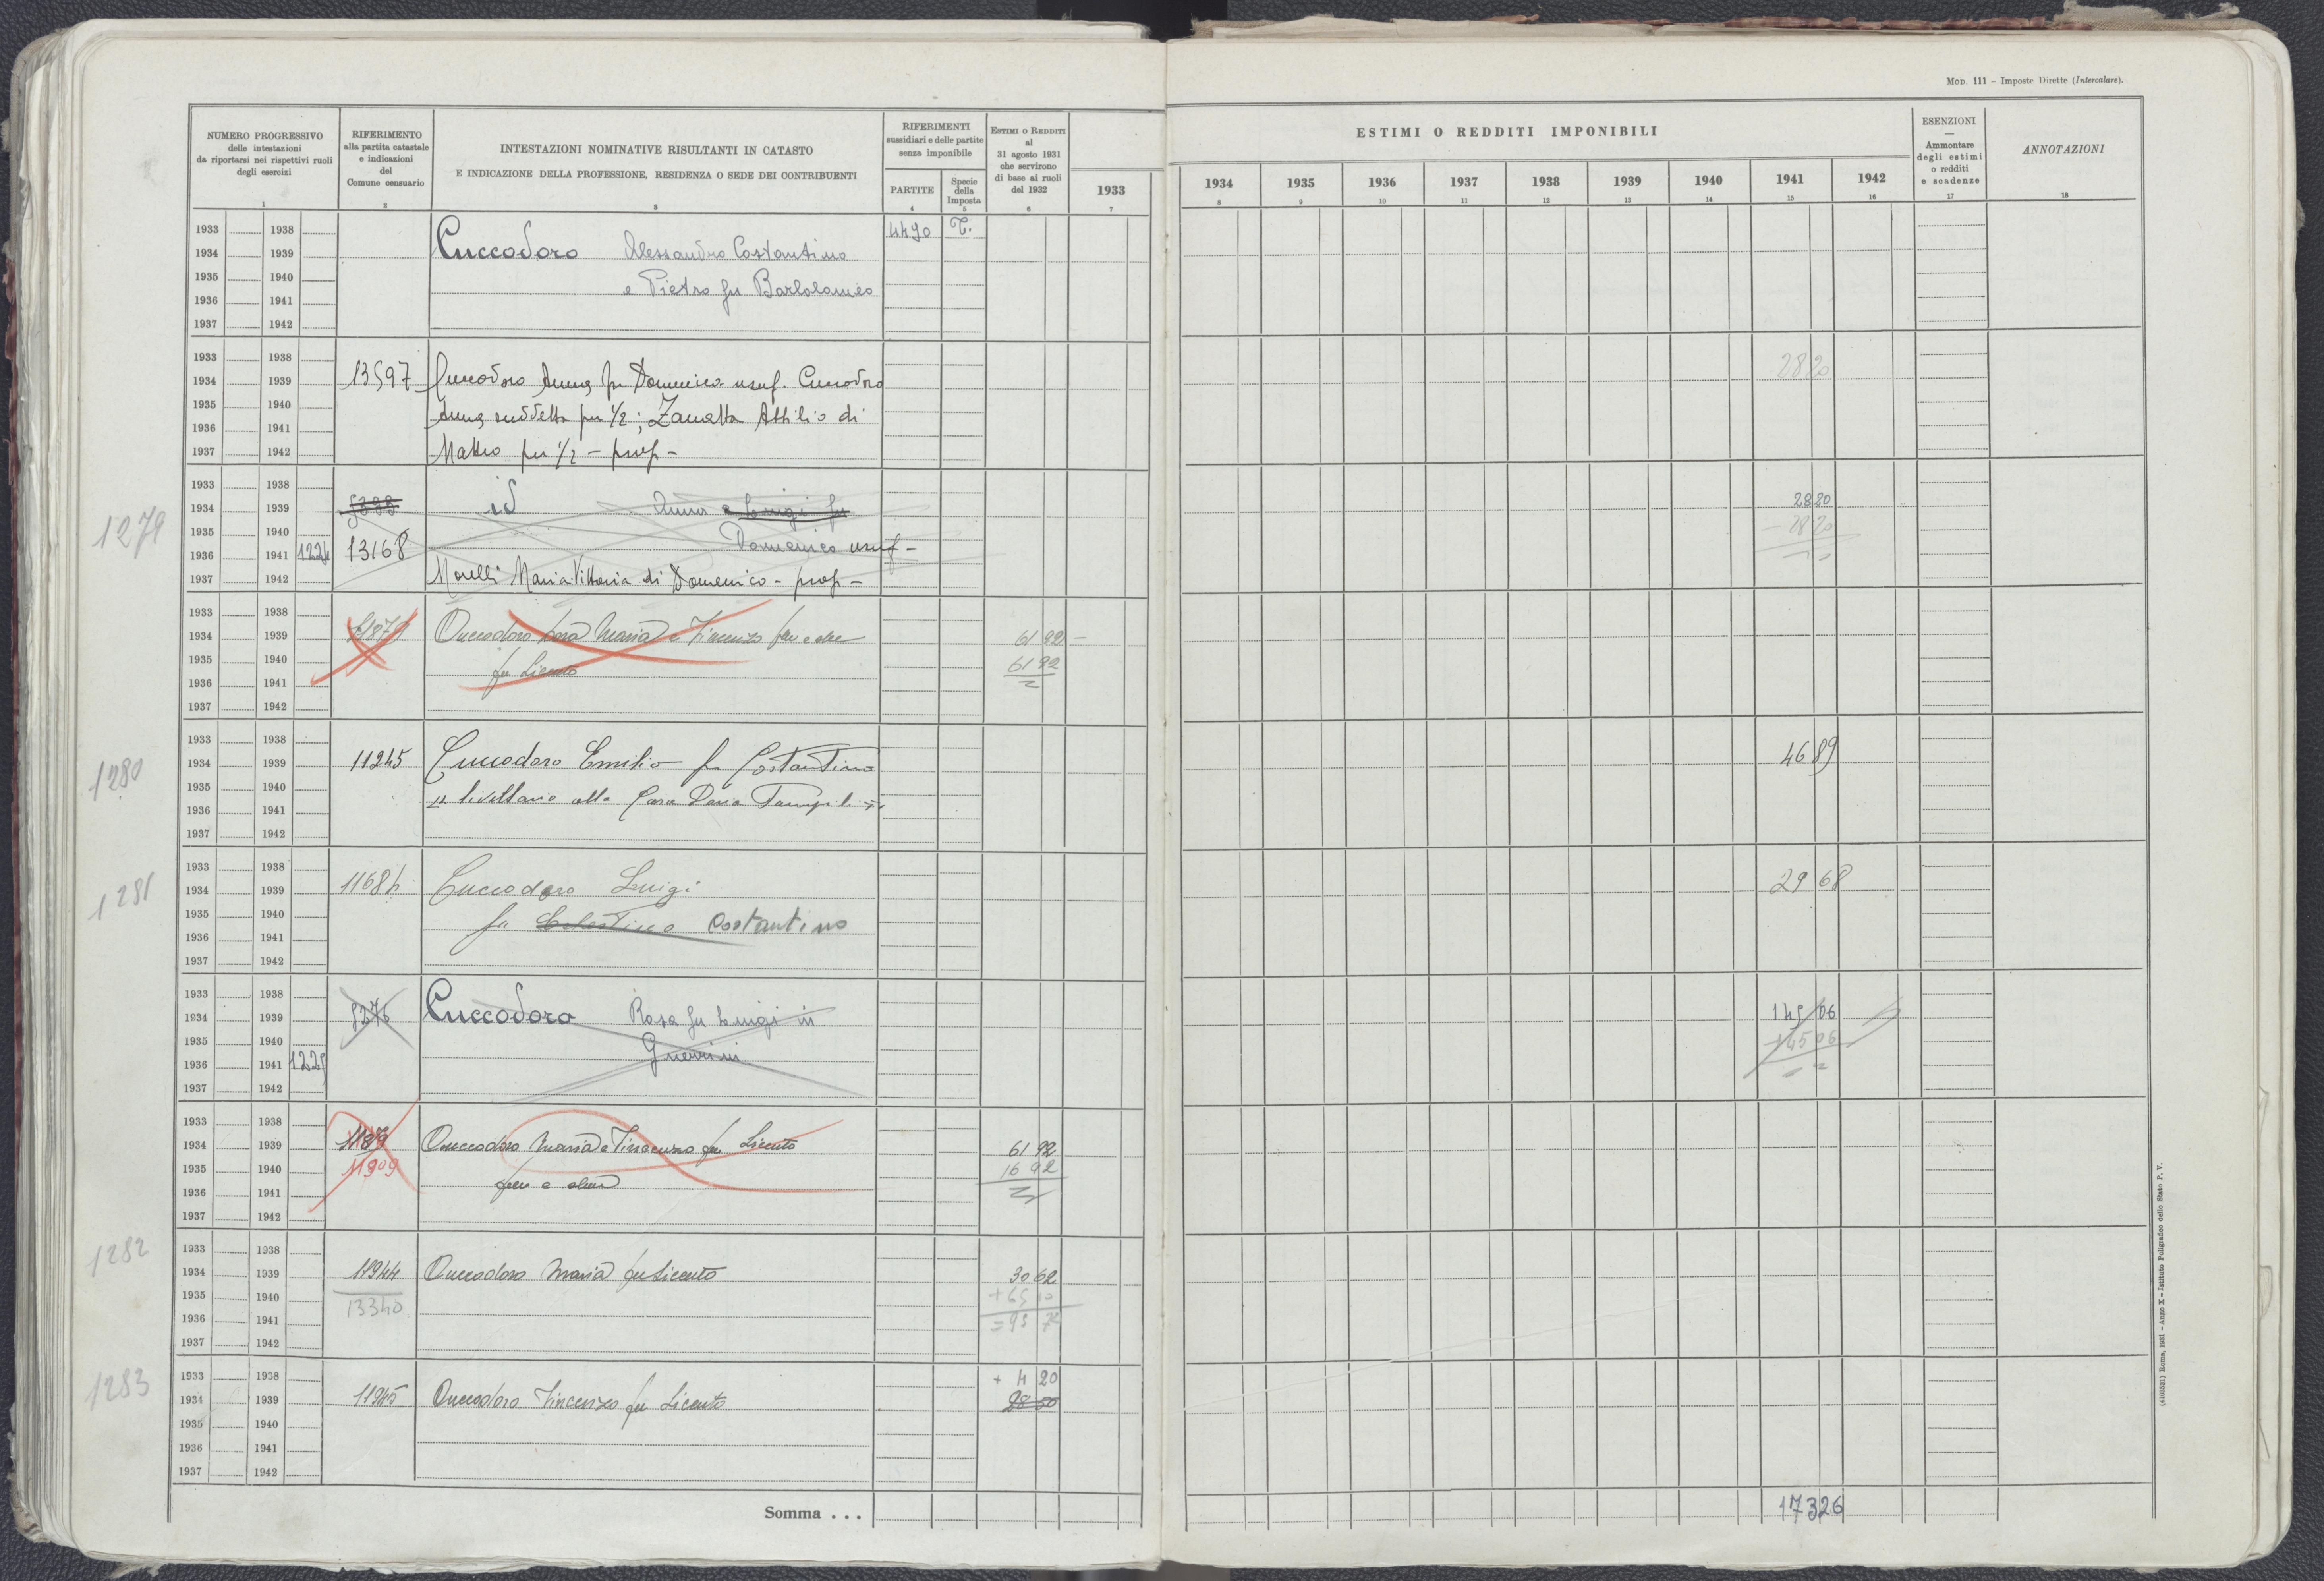 MOD. 111 – Imposte Dirette (Intercalare).
NUMERO PROGRESSIVO delle intestazioni da riportarsi nei rispettivi ruoli degli esercizi
RIFERIMENTO alla partita catastale e indicazioni del Comune censuario
INTESTAZIONI NOMINATIVE RISULTANTI IN CATASTO
E INDICAZIONE DELLA PROFESSIONE, RESIDENZA O SEDE DEI CONTRIBUENTI
RIFERIMENTI sussidiari e delle partite senza imponibile
PARTITE
Specie della Imposta
ESTIMI O REDDITI al 31 agosto 1931 che servirono di base ai ruoli del 1932
ESTIMI O REDDITI IMPONIBILI
1933 1934 1935 1936 1937 1938 1939 1940 1941 1942
ESENZIONI — Ammontare degli estimi o redditi e scadenze
ANNOTAZIONI
1 2 3 4 5 6 7 8 9 10 11 12 13 14 15 16 17 18
1933 1938
1934 1939
1935 1940
1936 1941
1937 1942
Cuccodoro Alessandro Costantino 4490 T.
e Pietro fu Bartolomeo
1933 1938
1934 1939
1935 1940
1936 1941
1937 1942
13597 Cuccodoro Anna fu Domenico usuf. Cuccodoro 2820
Anna suddetta per 1/2; Zanatta Attilio di
Matteo per 1/2 – prop –
1279
1933 1938
1934 1939
1935 1940
1936 1941 1224
1937 1942
id Anna e Luigi fu 2820
13168 Domenico usuf – – 2820
Morelli Maria Vittoria di Domenico – prop –
1933 1938
1934 1939
1935 1940
1936 1941
1937 1942
11879 Cuccodoro Maria e Vincenzo 6192 –
fu Licento 6192
1280
1933 1938
1934 1939
1935 1940
1936 1941
1937 1942
11245 Cuccodoro Emilio fu Costantino 4689
livellario alla Casa Doria
1281
1933 1938
1934 1939
1935 1940
1936 1941
1937 1942
11684 Cuccodoro Luigi 2968
fu Celestino Costantino
1933 1938
1934 1939
1935 1940
1936 1941 1225
1937 1942
5276 Cuccodoro Rosa fu Luigi in 14506
Guerrini 14506
1933 1938
1934 1939
1935 1940
1936 1941
1937 1942
11879 Cuccodoro Maria e Vincenzo fu Licento 6192
11909 1692
1282
1933 1938
1934 1939
1935 1940
1936 1941
1937 1942
11944 Cuccodoro Maria fu Licento 3062
13340 + 6510
= 95 72
1283
1933 1938
1934 1939
1935 1940
1936 1941
1937 1942
+ 4 20
11945 Cuccodoro Vincenzo fu Licento
Somma . . . 17326
(4103581) Roma, 1931 – Anno X – Istituto Poligrafico dello Stato P. V.